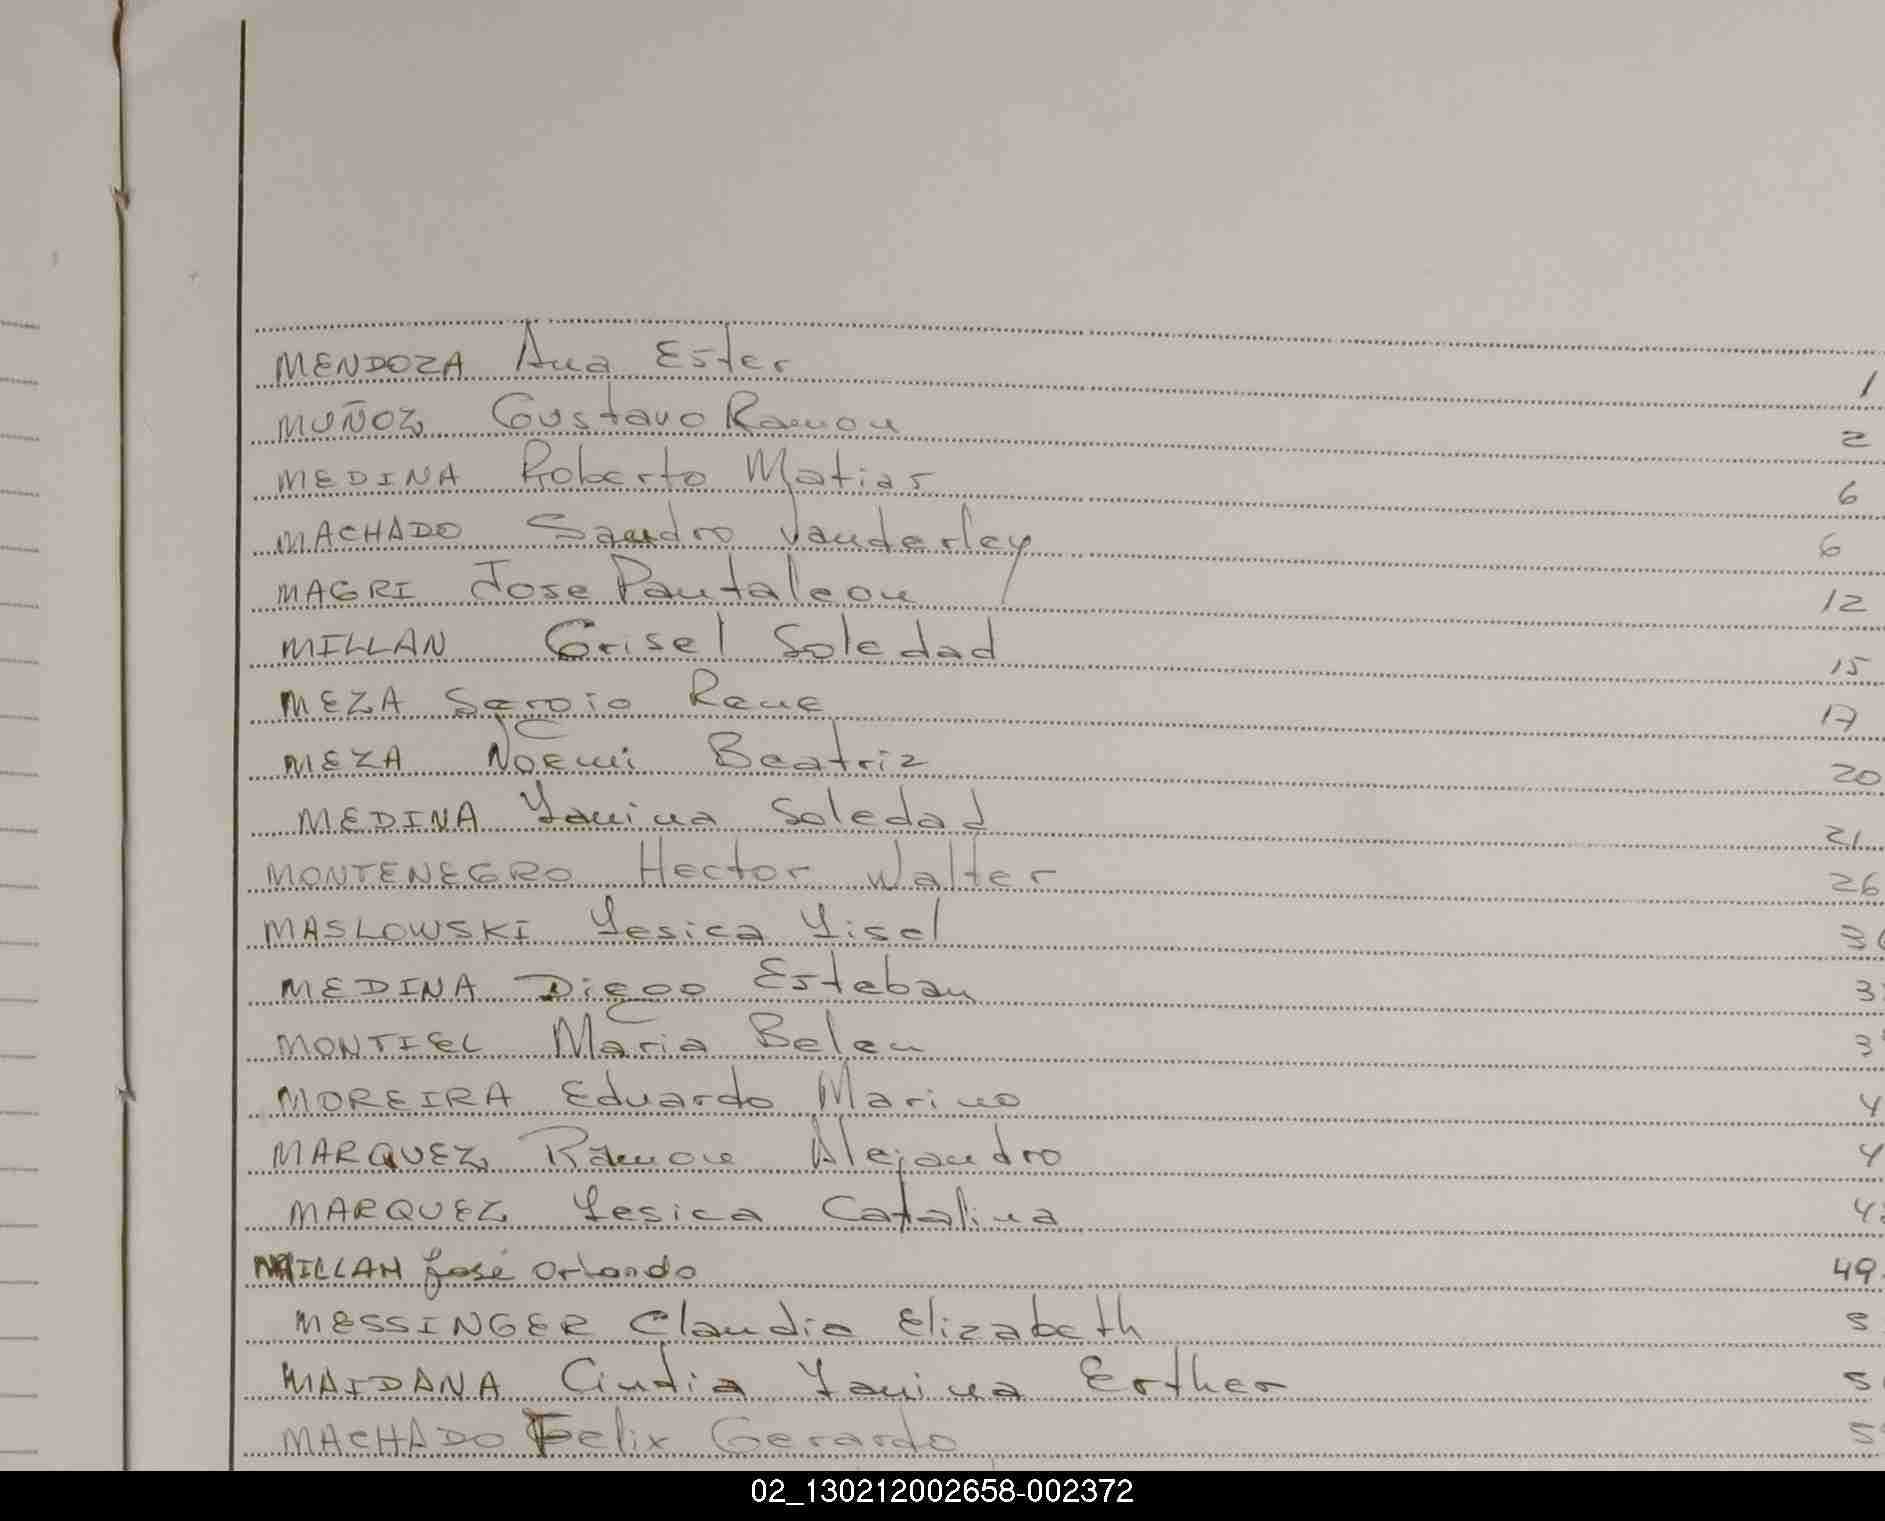 MENDOZA Ana Ester 1
MUÑOZ Gustavo Ramon 2
MEDINA Roberto Matias 6
MACHADO Sandro Vanderley 6
MAGRI Jose Pantaleon 12
MILLAN Grisel Soledad 15
MEZA Sergio Rene 17
MEZA Noemi Beatriz 20
MEDINA Yanina Soledad 21
MONTENEGRO Hector Walter 26
MASLOWSKI Yesica Yisel
MEDINA Diego Esteban
MONTIEL Maria Belen
MOREIRA Eduardo Marino
MARQUEZ Ramon Alejandro
MARQUEZ Yesica Catalina
MILLAN José Orlando 49
MESSINGER Claudia Elizabeth
MAIDANA Cintia Yanina Esther
MACHADO Felix Gerardo
02_130212002658-002372